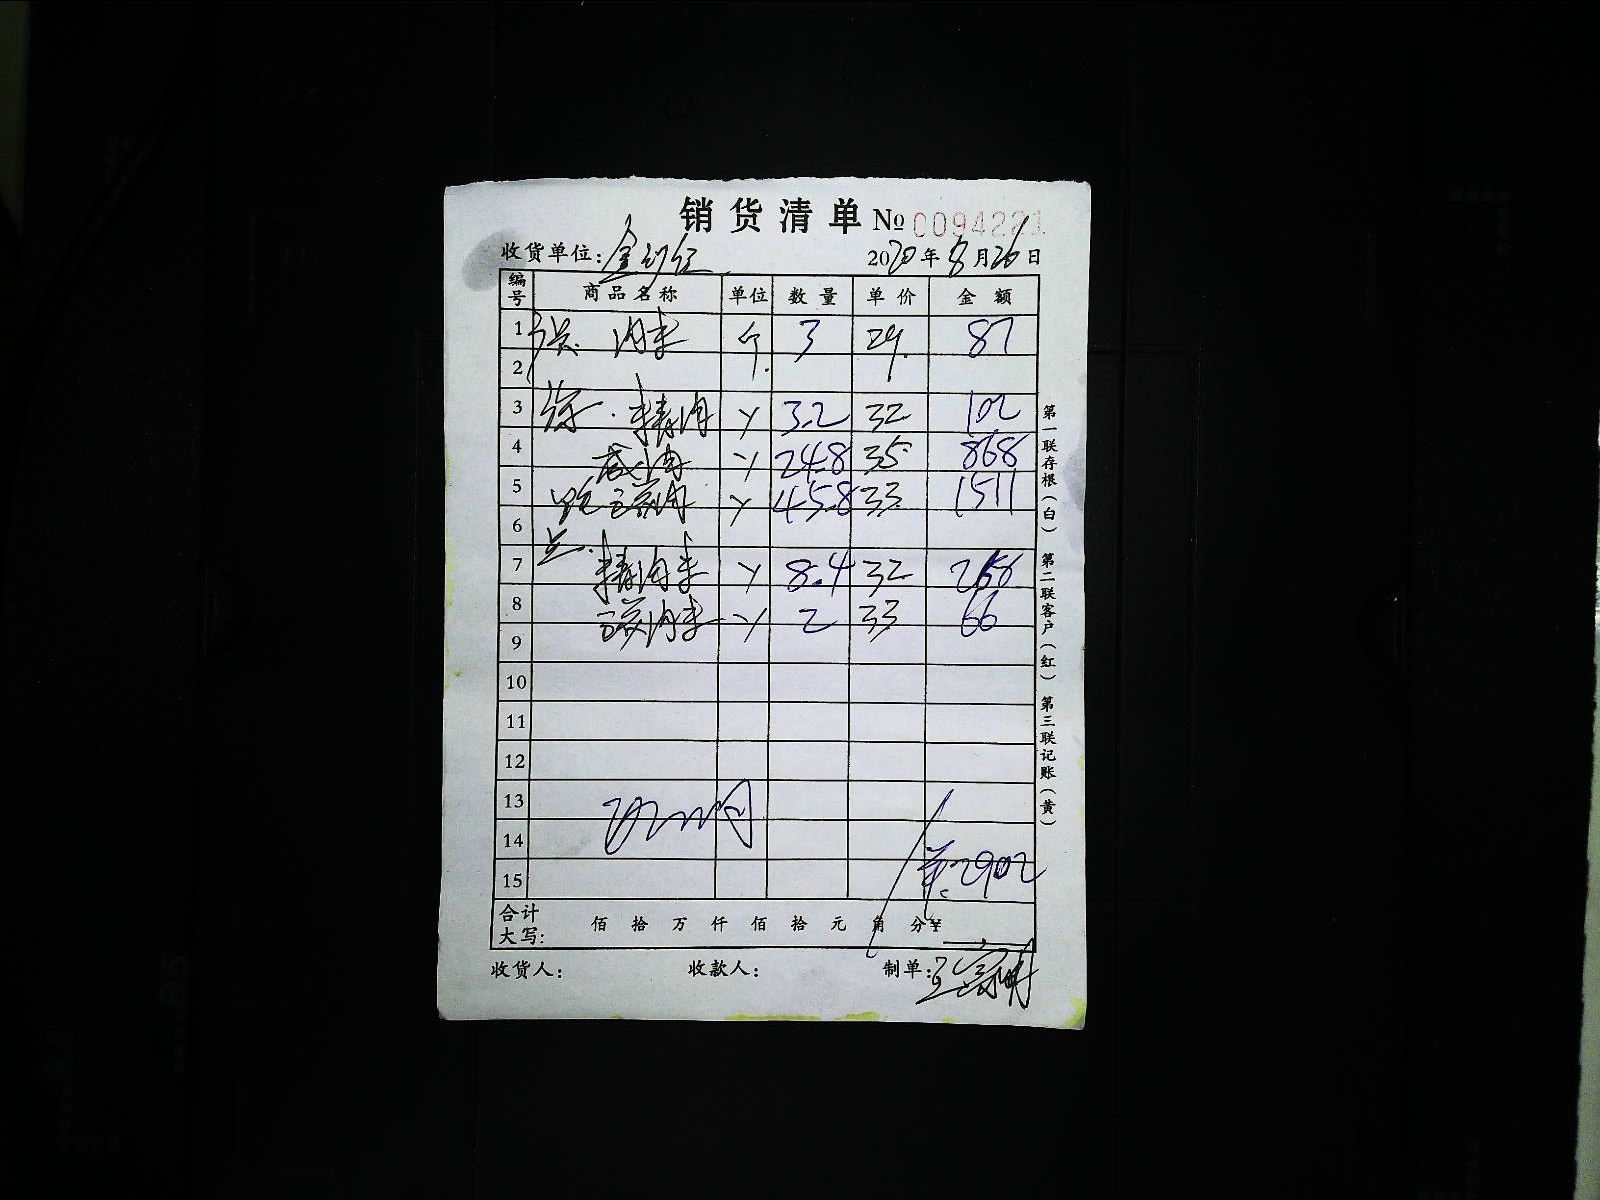 销货清单 № 0094221
收货单位: 2020年8月26日
编号 商品名称 单位 数量 单价 金额
1 肉末 3 29. 87
2
3 精肉 3.2 32 102
4 肉 24.8 35 868
5 肉 45.8 33 1511
6
7 精肉末 8.4 32 268
8 肉末 2 33 66
9
10
11
12
13
14
15 2902
合计大写: 佰 拾 万 仟 佰 拾 元 角 分¥
收货人: 收款人: 制单:
第一联存根(白) 第二联客户(红) 第三联记账(黄)